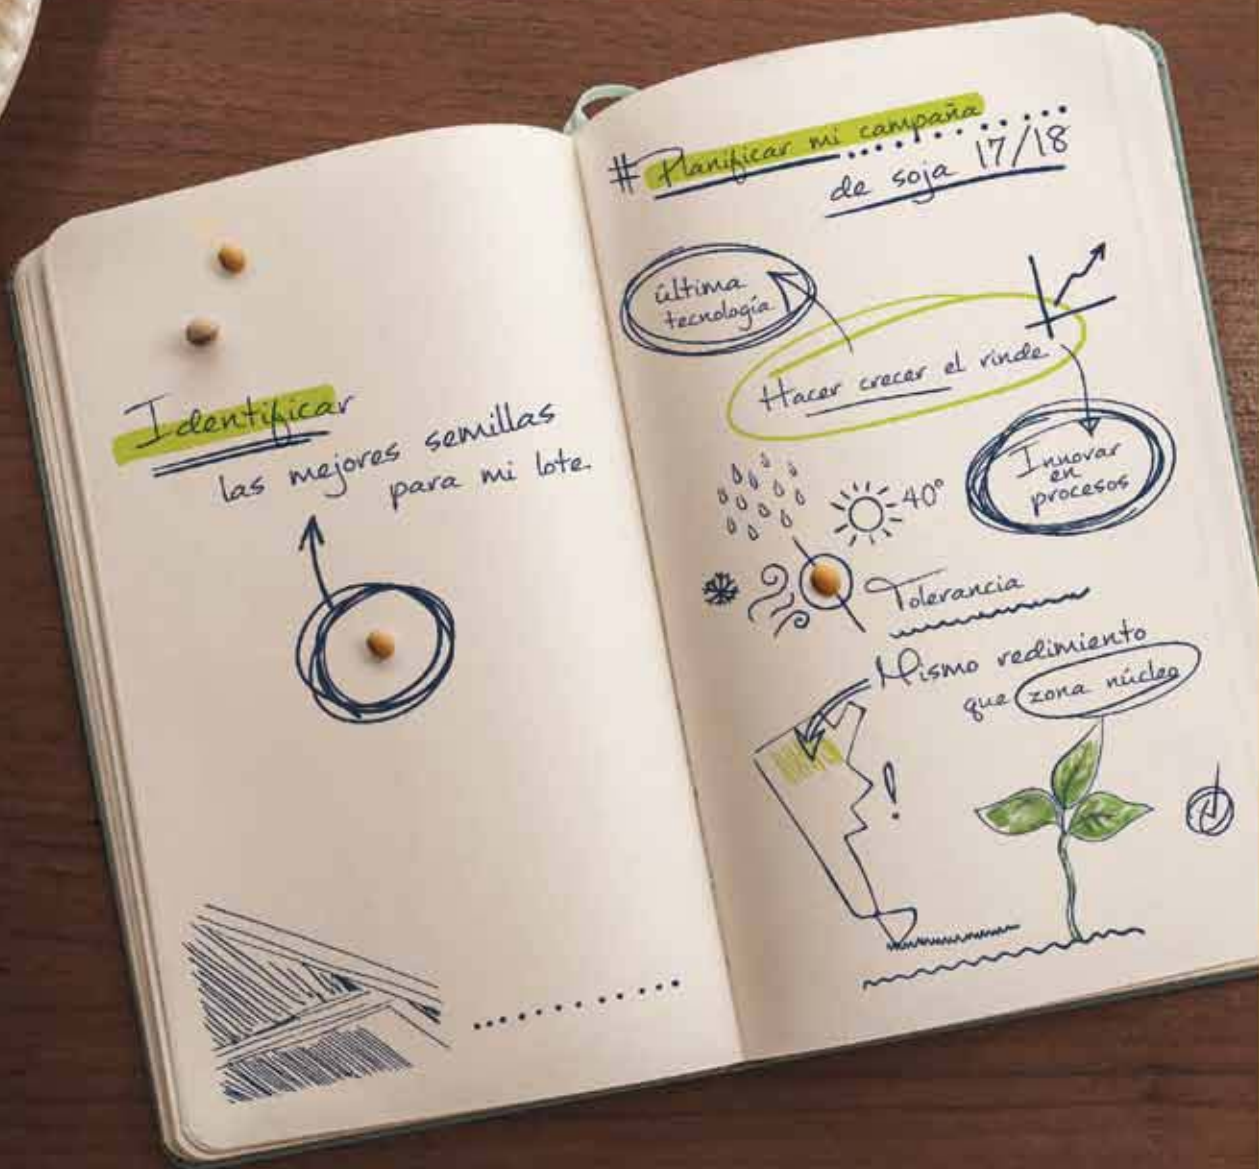 Identificar
las mejores semillas
para mi lote.
# Planificar mi campaña
de soja 17/18
última
tecnología
Hacer crecer el rinde
Innovar
en
procesos
40°
Tolerancia
Mismo redimiento
que zona núcleo
!